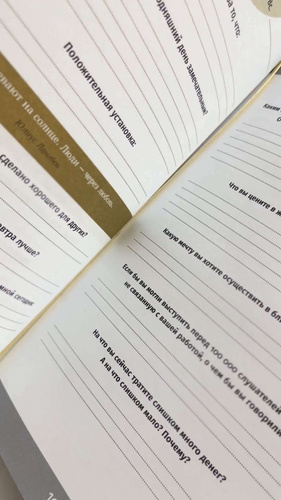 а то, что:
одняшний день замечательным?
Положительная установка:
евают на солнце. Люди –
через любовь.
сделано хорошего для других?
втра лучше?
мной сегодня
Какие
Что вы цените в ж
Какую мечту вы хотите осуществить в бли
Если бы вы могли выступить перед 100 000 слушателей
не связанную с вашей работой, о чем бы вы говорили
На что вы сейчас тратите слишком много денег?
А на что слишком мало? Почему?